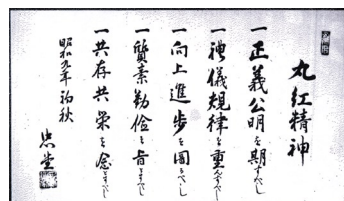 丸紅精神
一正義公明を期すべし
一礼儀規律を重んずべし
一向上進歩を図るべし
一質素勤倹を旨とすべし
一共存共栄を念とすべし
昭和九年初秋
忠堂